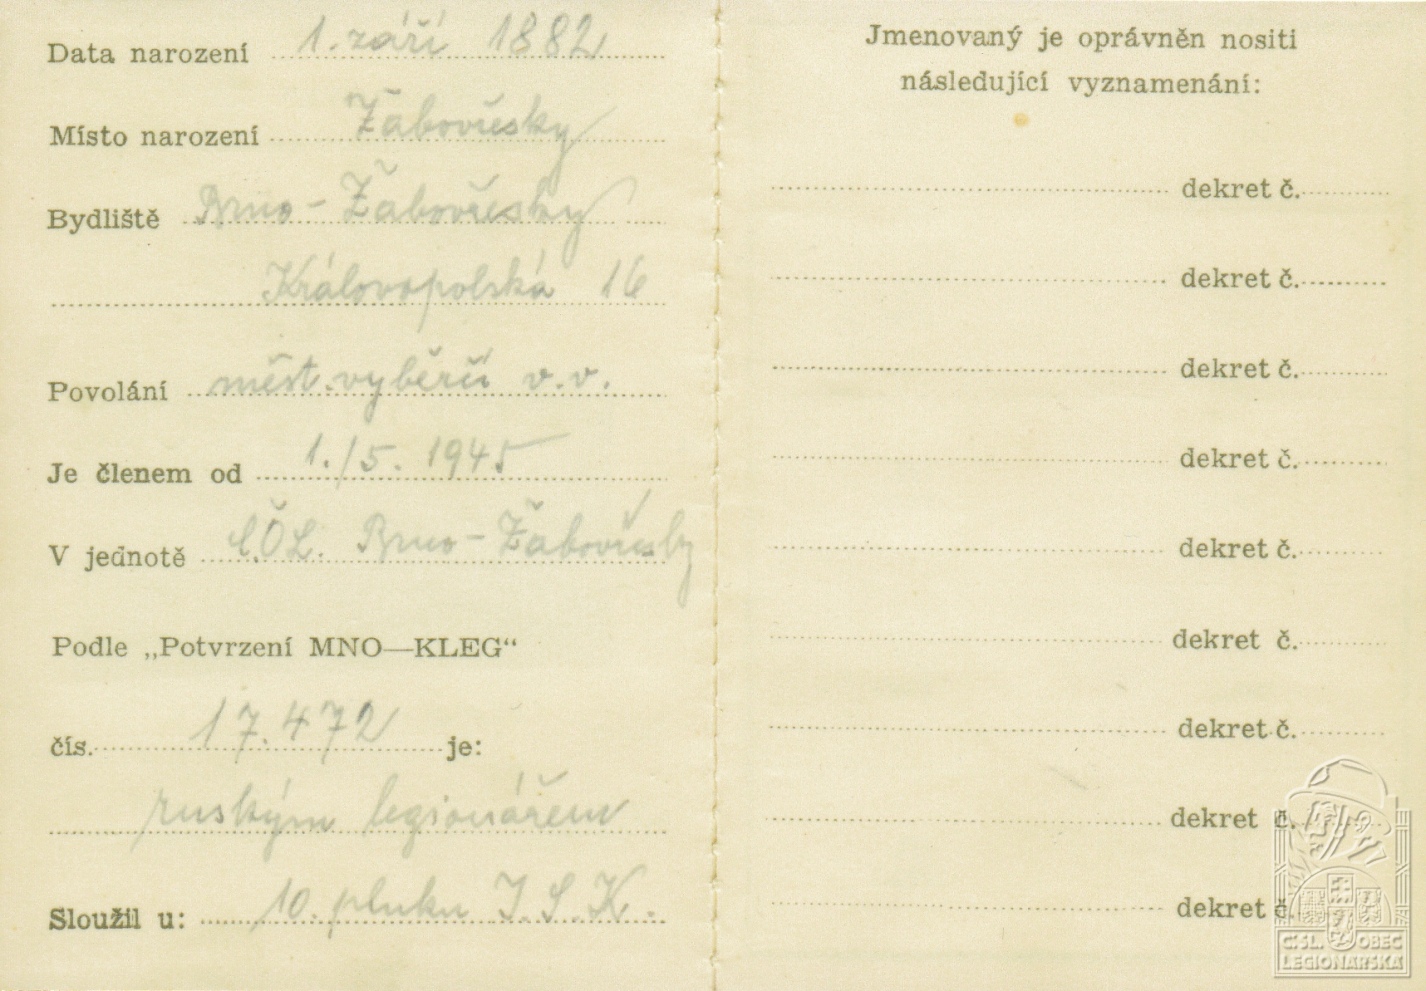 Data narození 1. září 1882
Místo narození Žabovřesky
Bydliště Brno - Žabovřesky
Královopolská 16
Povolání měst. výběrčí v.v.
Je členem od 1./5. 1945
V jednotě Č.O.L. Brno - Žabovřesky
Podle „Potvrzení MNO—KLEG“
čís. 17.472 je:
ruským legionářem
Sloužil u: 10. pluku
Jmenovaný je oprávněn nositi
následující vyznamenání:
dekret č.
dekret č.
dekret č.
dekret č.
dekret č.
dekret č.
dekret č.
dekret č.
dekret č.
ČSL. OBEC
LEGIONÁŘSKÁ